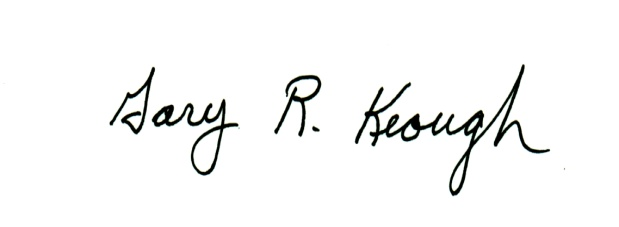 Gary R. Keough